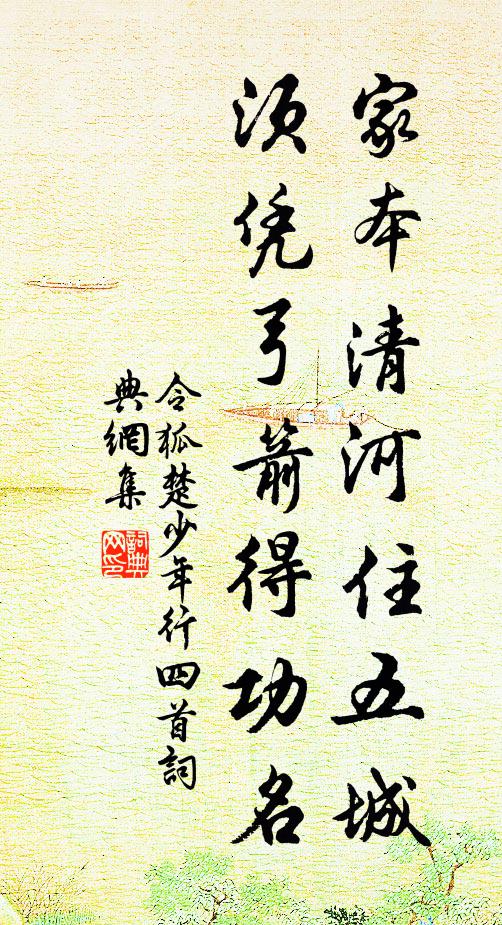 家本清河住五城
須凭弓箭得功名
令狐楚少年行四首詞
典網集
詞典
网印